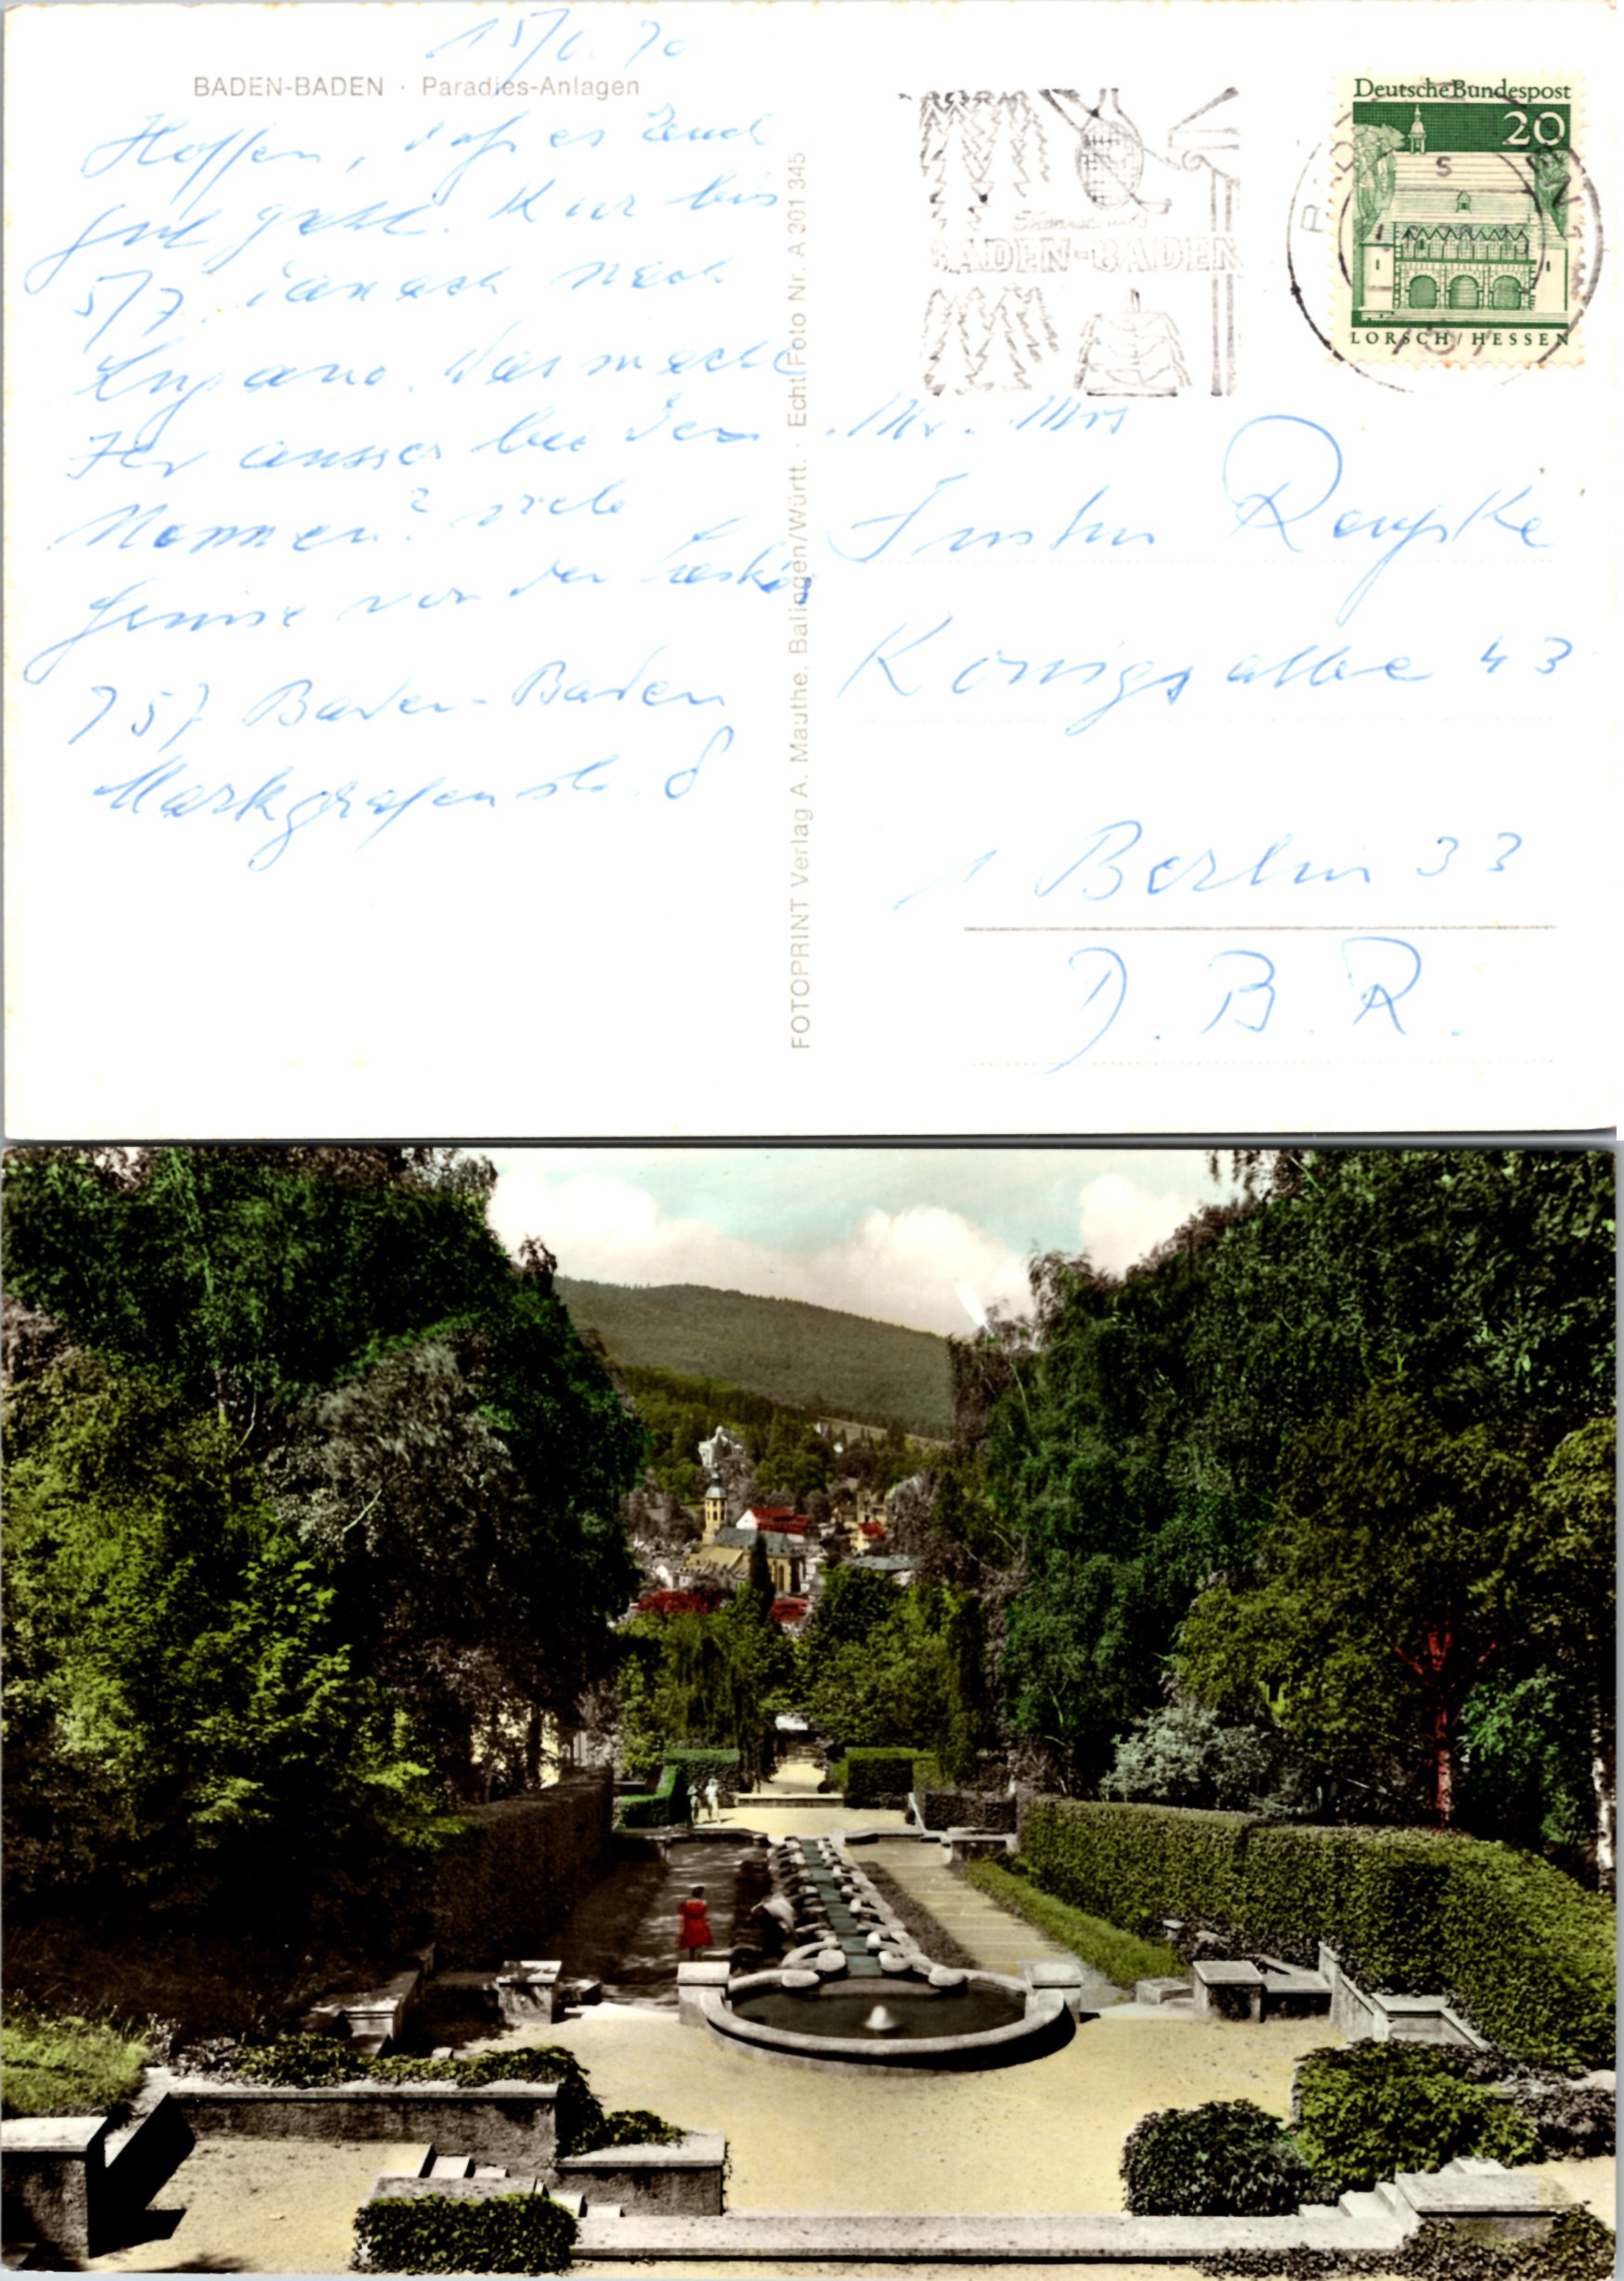 15/6.70
BADEN-BADEN · Paradies-Anlagen
Hoffen, daß es Euch
gut geht. Kur bis
5/7. danach nach
Lugano. Was macht
Ihr ausser bei den
Nonnen? viele
von der
757 Baden-Baden
Markgrafenstr. 8
FOTOPRINT Verlag A. Mauthe, Balingen/Württ. · Echt Foto Nr. A 301 345
BADEN-BADEN
Deutsche Bundespost
20
LORSCH/HESSEN
Mr. Mrs
Königsallee 43
1 Berlin 33
D.B.R.